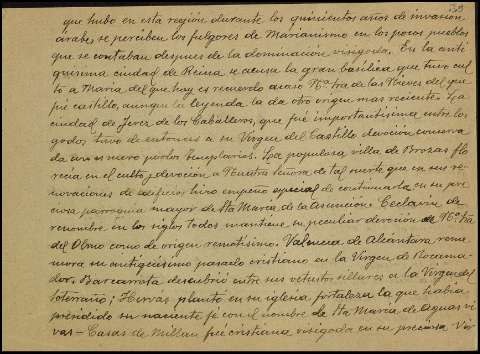 que hubo en esta región durante los quinientos años de invasión
árabe, se perciben los fulgores de Marianismo en los pocos pueblos
que se contaban despues de la dominación visigoda. En la anti
quisima ciudad de Reina se acusa la gran basilica que tuvo cul
to a Maria del que hoy es recuerdo acaso Nª. Sra de las Nieves del que
fué castillo, aunque la leyenda la da otro origen mas reciente. La
ciudad de Jerez de los Caballeros, que fué importantisima entre los
godos, tuvo de entonces a su Virgen del Castillo devoción conserva
da aun es nuevo por los templarios. La populosa villa de Brozas flo
recia en el culto y devoción a Nuestra Señora de tal suerte que en sus re
novaciones de edificios hizo empeño especial de continuarla en su pre
ciosa parroquia mayor de Sta Maria de la Asunción. Ceclavin de
renombre en los siglos todos mantiene su peculiar devoción de Nª. Sra
del Olmo como de origen remotisimo. Valencia de Alcántara reme
mora su antiguisimo pasado cristiano en la Virgen de Rocama
dor. Barcarrota descubrió entre sus vetustos sillares a la Virgen del
Soterraño; Hervas planto en su iglesia fortaleza la que habia
presidido su naciente fé con el nombre de Sta Maria de Aguas vi
vas — Casas de Millan fué cristiana visigoda en su preciosa Vir